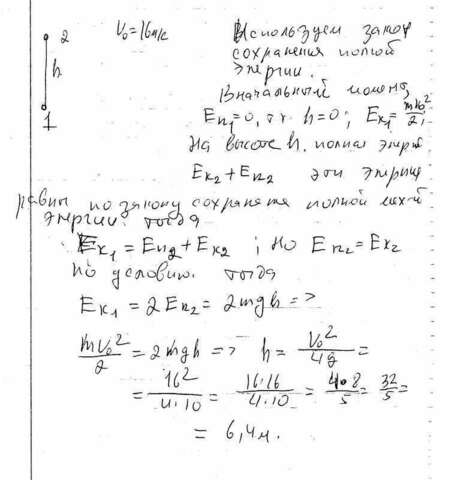 2
V₀=16м/с
h
1
Используем закон
сохранения полной
энергии.
В начальный момент,
Eп₁=0, т.к. h=0; Eк₁=mV₀²/2;
На высоте h. полная энергия
Eк₂+Eп₂ эти энергии
равны по закону сохранения полной мех-й
энергии. тогда
Eк₁=Eп₂+Eк₂; но Eп₂=Eк₂
по условию. тогда
Eк₁=2Eп₂=2mgh=>
mV₀²/2=2mgh=> h=V₀²/4g=
=16²/4·10=16·16/4·10=4·8/5=32/5=
= 6,4м.